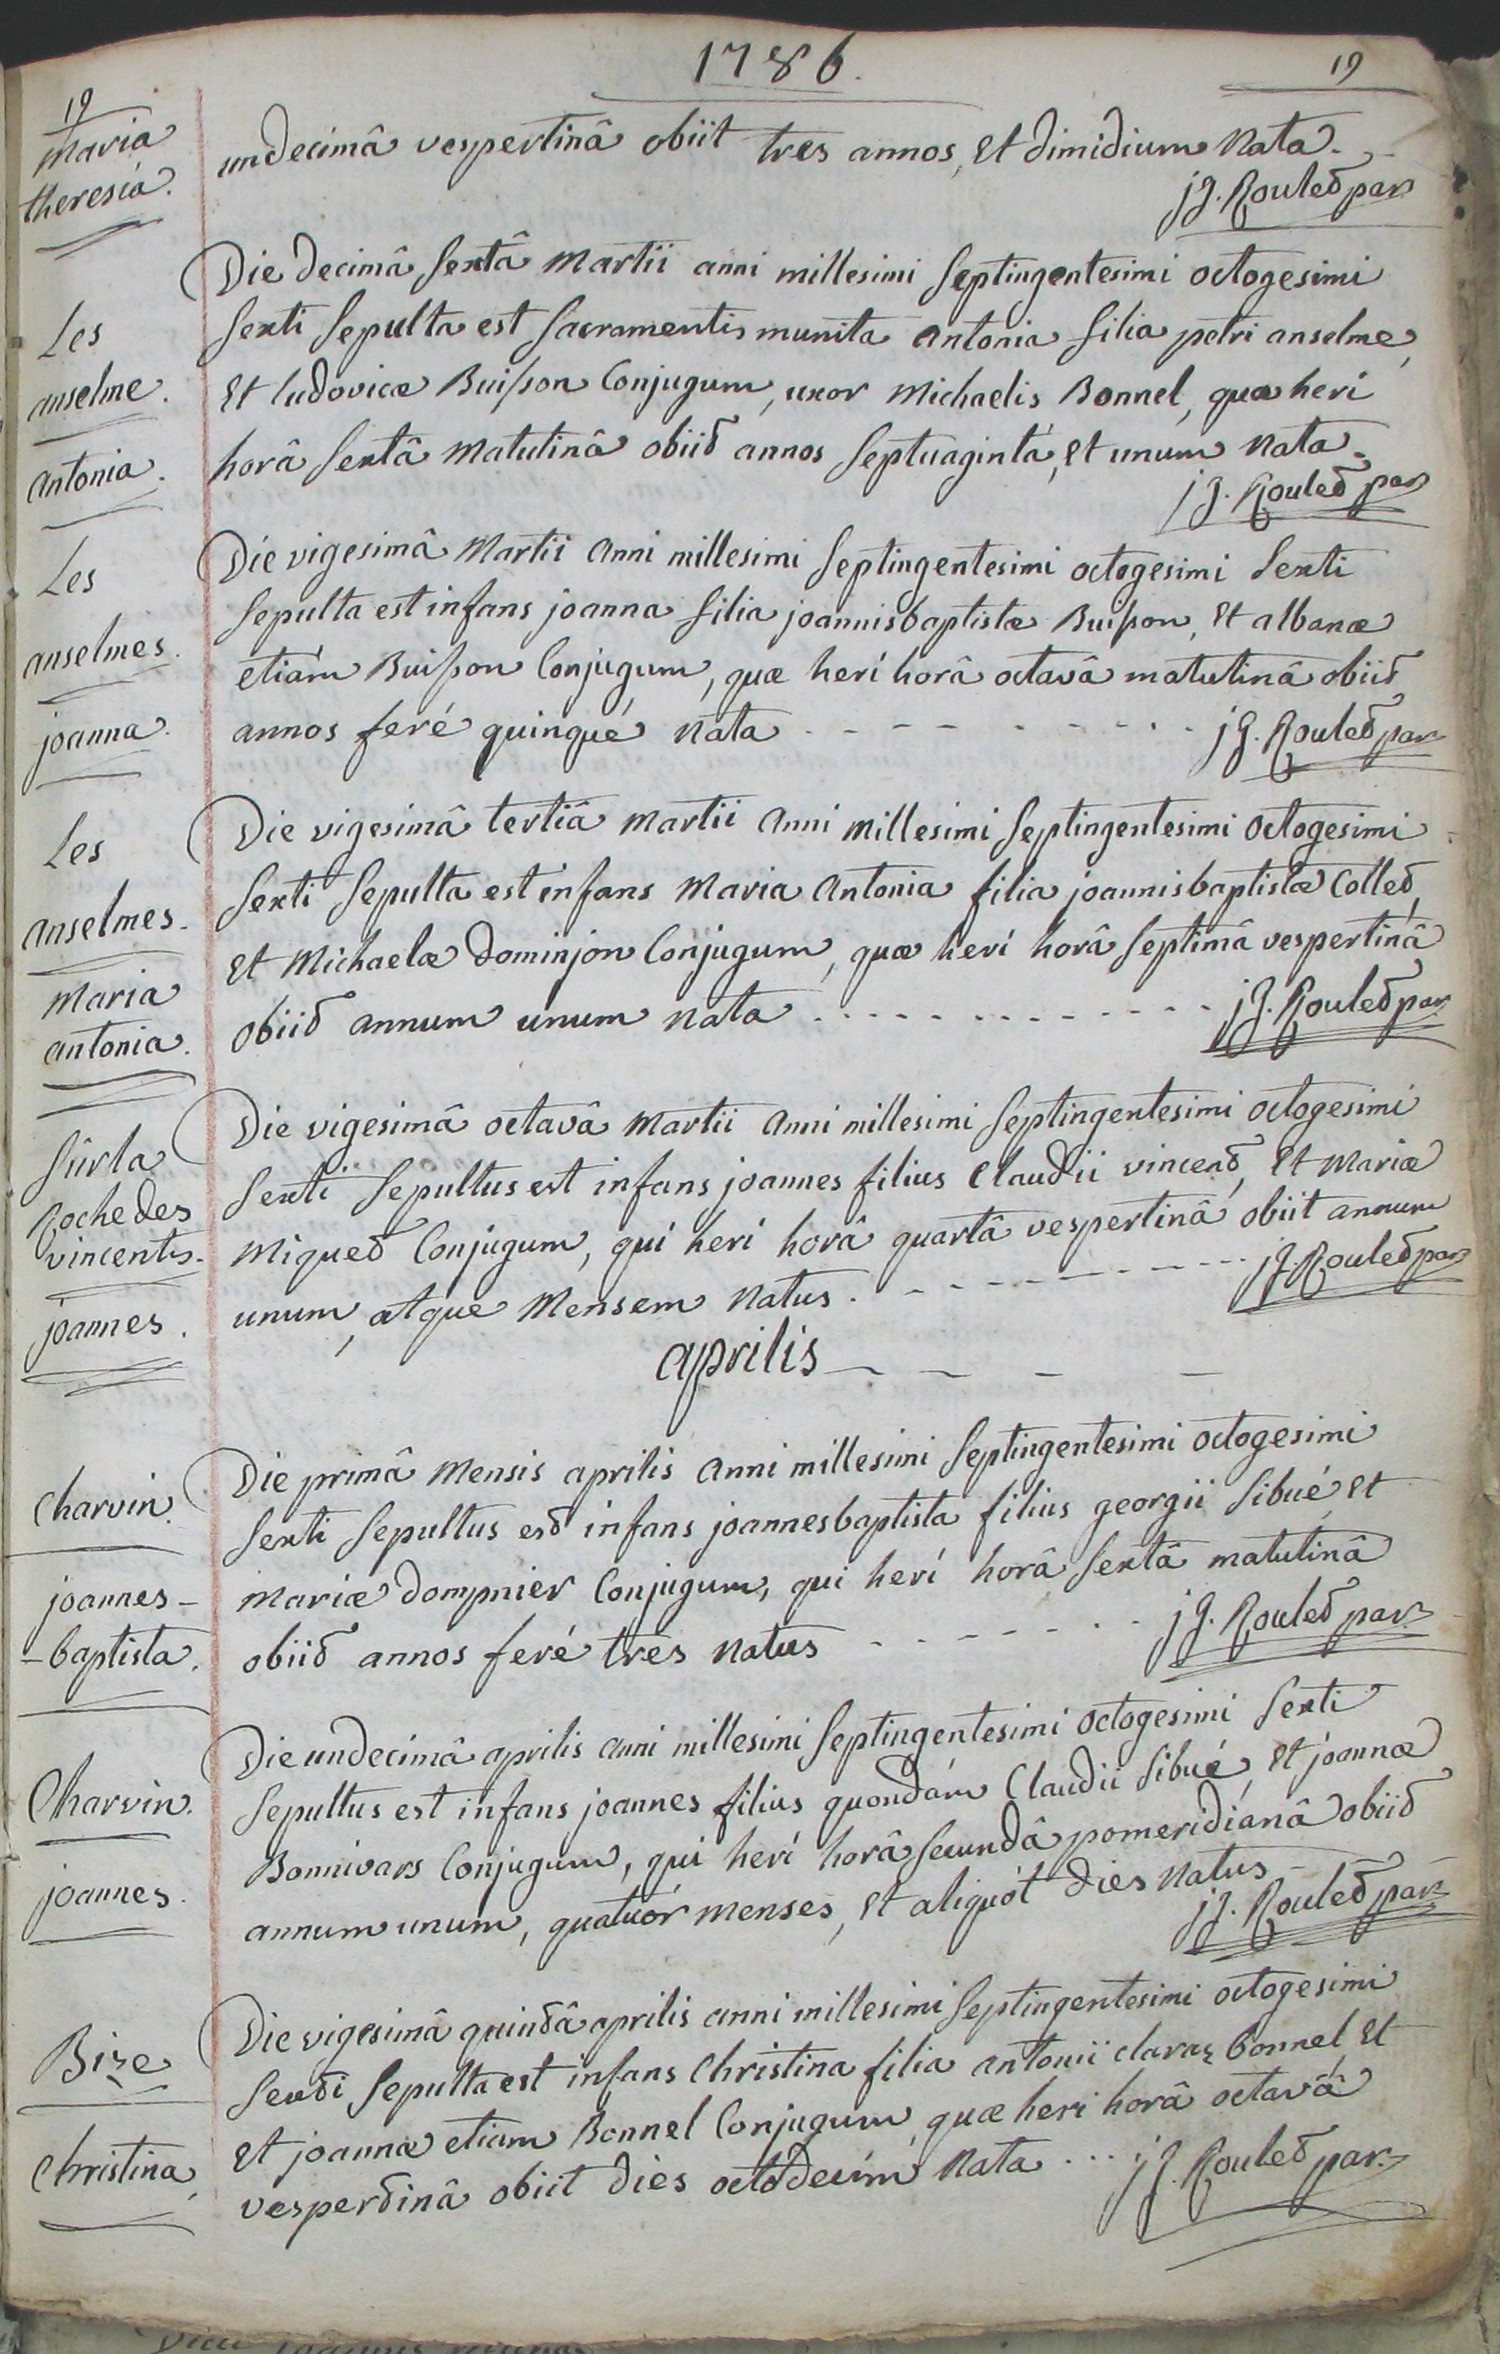 1786.
19
19
Maria
theresia.
undecimâ vespertinâ obiit tres annos, Et dimidium Nata.
jg. Rouled par
Les
anselme.
antonia.
Die decimâ Sextâ Martii anni millesimi Septingentesimi octogesimi
Sexti Sepulta est Sacramentis munita antonia filia petri anselme,
Et ludovicæ Buisson Conjugum, uxor Michaelis Bonnel, quæ heri
horâ Sextâ Matutinâ obiit annos Septuaginta, Et unum Nata.
jg. Rouled par
Les
anselmes.
joanna.
Die vigesimâ Martii anni millesimi Septingentesimi octogesimi Sexti
Sepulta est infans joanna filia joannisbaptistæ Buisson, Et albanæ
etiám Buisson Conjugum, quæ heri horâ octavâ matutinâ obiit
annos feré quinqué Nata
jg. Rouled par
Les
anselmes.
Maria
antonia.
Die vigesimâ tertiâ Martii anni Millesimi Septingentesimi octogesimi
Sexti Sepulta est infans Maria antonia filia joannisbaptistæ Colled,
Et Michaelæ Dominjon Conjugum, quæ heri horâ Septimâ vespertinâ
obiit annum unum Nata
jg. Rouled par
Sûrla
Roche des
vincents.
joannes.
Die vigesimâ octavâ Martii anni millesimi Septingentesimi octogesimi
Sexti Sepultus est infans joannes filius Claudii vincend, Et Mariæ
Miqued Conjugum, qui heri horâ quartâ vespertinâ obiit annum
unum, atque Mensem Natus.
jg. Rouled par
aprilis
Charvin.
joannes-
-baptista.
Die primâ Mensis aprilis anni millesimi Septingentesimi octogesimi
Sexti Sepultus est infans joannesbaptista filius georgii Sibué, Et
Mariæ Dompnier Conjugum, qui heri horâ Sextâ matutinâ
obiit annos feré tres Natus
jg. Rouled par.
Charvin.
joannes.
Die undecimâ aprilis anni millesimi Septingentesimi octogesimi Sexti
Sepultus est infans joannes filius quondám Claudii Sibué, Et joannæ
Bonnivars Conjugum, qui heri horâ Secundâ pomeridianâ obiit
annum unum, quatuór Menses, Et aliquót dies Natus
jg. Rouled par
Bize
Christina
Die vigesimâ quintâ aprilis anni millesimi Septingentesimi octogesimi
Sexti Sepulta est infans Christina filia antonii claraz bonnel, Et
Et joannæ etiam Bonnel Conjugum, quæ heri horâ octavâ
vespertinâ obiit dies octódecim Nata
jg. Rouled par.